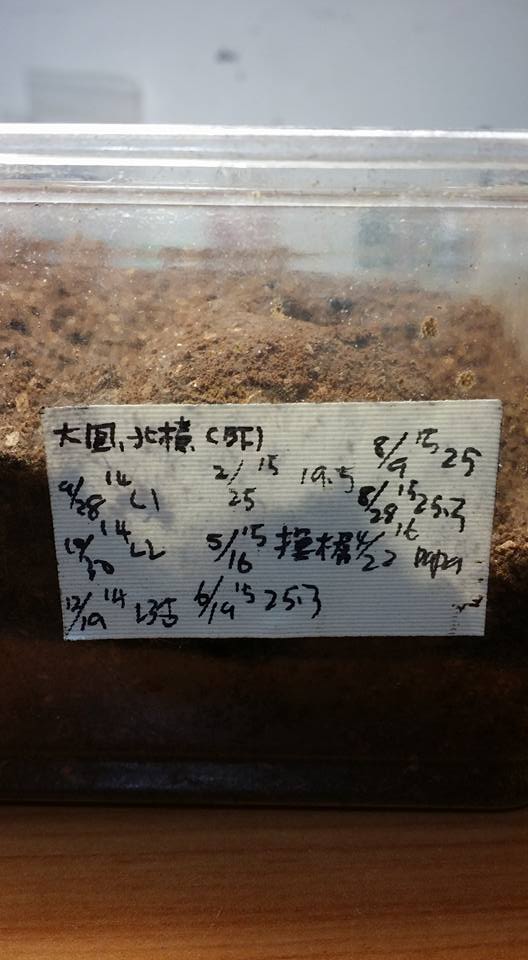 大圓、北橫(BF)
9/28 '14 L1
10/30 '14 L2
12/19 '14 L3
2/25 '15 19.5
5/16 '15
6/19 '15 25.3
8/9 '15 25
8/28 '15 25.3
4/22 '16 papa